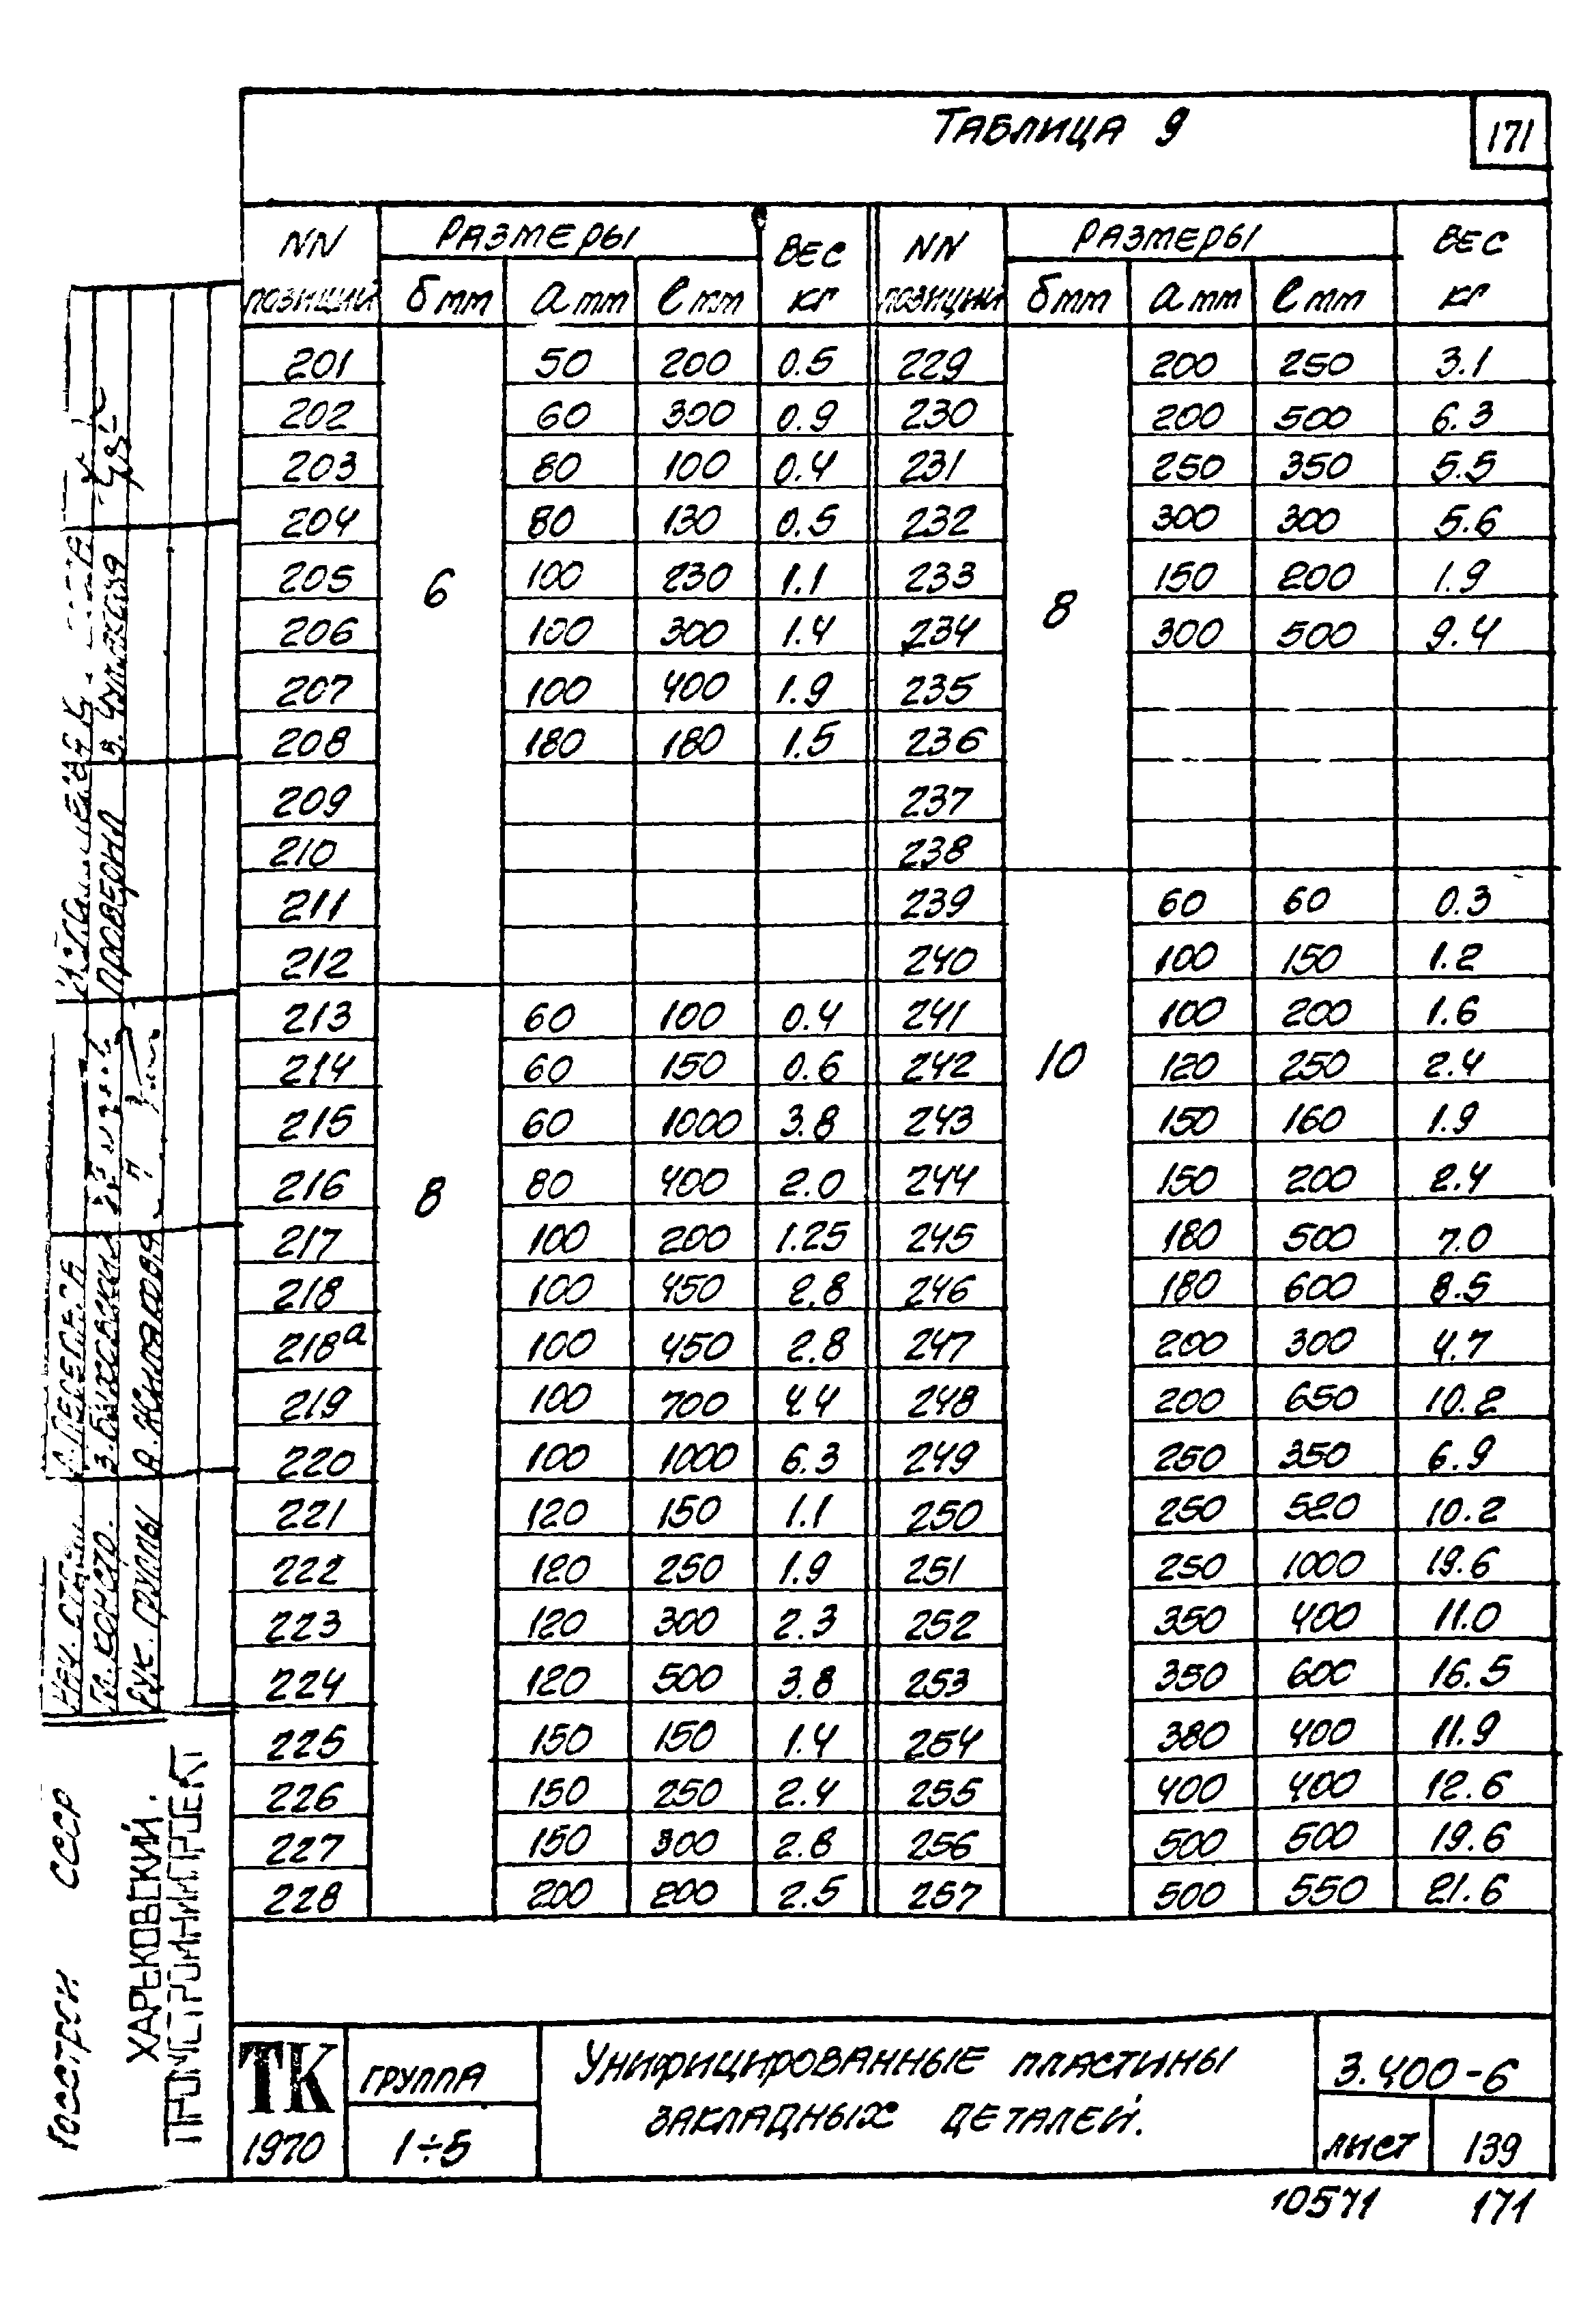 ТАБЛИЦА 9
171
NN ПОЗИЦИЙ РАЗМЕРЫ ВЕС КГ NN ПОЗИЦИИ РАЗМЕРЫ ВЕС КГ
δ мм а мм ℓ мм δ мм а мм ℓ мм
201 50 200 0.5 229 200 250 3.1
202 60 300 0.9 230 200 500 6.3
203 80 100 0.4 231 250 350 5.5
204 80 130 0.5 232 300 300 5.6
205 6 100 230 1.1 233 8 150 200 1.9
206 100 300 1.4 234 300 500 9.4
207 100 400 1.9 235
208 180 180 1.5 236
209 237
210 238
211 239 60 60 0.3
212 240 100 150 1.2
213 60 100 0.4 241 100 200 1.6
214 60 150 0.6 242 10 120 250 2.4
215 60 1000 3.8 243 150 160 1.9
216 8 80 400 2.0 244 150 200 2.4
217 100 200 1.25 245 180 500 7.0
218 100 450 2.8 246 180 600 8.5
218а 100 450 2.8 247 200 300 4.7
219 100 700 4.4 248 200 650 10.2
220 100 1000 6.3 249 250 350 6.9
221 120 150 1.1 250 250 520 10.2
222 120 250 1.9 251 250 1000 19.6
223 120 300 2.3 252 350 400 11.0
224 120 500 3.8 253 350 600 16.5
225 150 150 1.4 254 380 400 11.9
226 150 250 2.4 255 400 400 12.6
227 150 300 2.8 256 500 500 19.6
228 200 200 2.5 257 500 550 21.6
ТК
1970
ГРУППА
1÷5
УНИФИЦИРОВАННЫЕ ПЛАСТИНЫ
ЗАКЛАДНЫХ ДЕТАЛЕЙ.
3.400-6
ЛИСТ 139
10571 171
РУК. ГРУППЫ
ПРОВЕРИЛ
СССР
ХАРЬКОВСКИЙ
ПРОМСТРОЙНИИПРОЕКТ